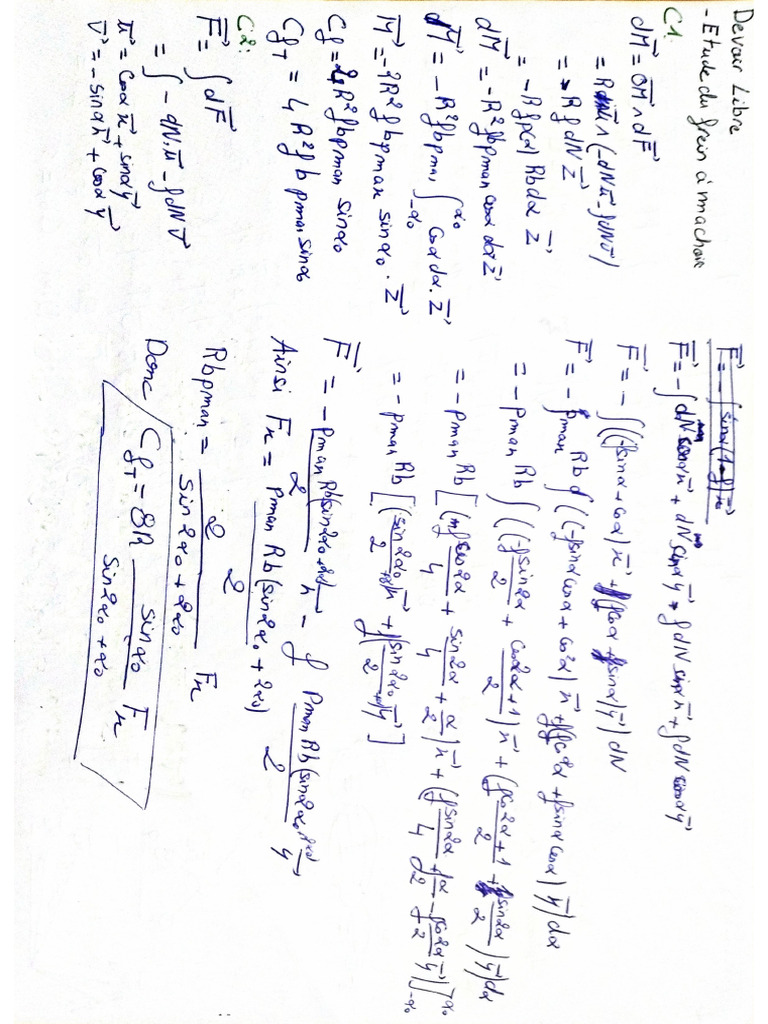 Devoir Libre
- Etude du frein à machoire
C1.
dM⃗ = OM⃗ ∧ dF⃗
= R u⃗ ∧ (-dN u⃗ - f dN v⃗)
= - R f dN z⃗
= - R f p(α) R b dα z⃗
dM⃗ = -R² f b pmax cosα dα z⃗
M⃗ = -R² f b pmax ∫_{-α₀}^{α₀} cosα dα . z⃗
M⃗ = -2R² f b pmax sinα₀ . z⃗
Cf = 2R² f b pmax sinα₀
Cf_T = 4 R² f b pmax sinα₀
C2:
F⃗ = ∫ dF⃗
= ∫ - dN.u⃗ - f dN v⃗
u⃗ = cosα x⃗ + sinα y⃗
v⃗ = -sinα x⃗ + cosα y⃗
F⃗ = -∫ dN cosα x⃗ + dN sinα y⃗ - f dN sinα x⃗ + f dN cosα y⃗
F⃗ = - ∫((-f sinα + cosα) x⃗ + (f cosα + sinα) y⃗) dN
F⃗ = - pmax Rb ∫((-f sinα cosα + cos²α) x⃗ + (f cos²α + sinα cosα) y⃗) dα
= - pmax Rb ∫((-f sin2α/2 + (cos2α + 1)/2) x⃗ + (f (cos2α + 1)/2 + sin2α/2) y⃗) dα
= - pmax Rb [(f cos2α/4 + sin2α/4 + α/2) x⃗ + (f sin2α/4 + f α/2 - cos2α/2) y⃗]_{-α₀}^{α₀}
= - pmax Rb [(sin2α₀/2 + α₀) x⃗ + f (sin2α₀/2 + α₀) y⃗]
F⃗ = - pmax Rb(sin2α₀ + 2α₀)/2 x⃗ - f pmax Rb(sin2α₀ + 2α₀)/2 y⃗
Ainsi Fx = pmax Rb(sin2α₀ + 2α₀)/2
Rb pmax = 2/(sin2α₀ + 2α₀) Fx
Donc Cf_T = 8R sinα₀/(sin2α₀ + α₀) Fx